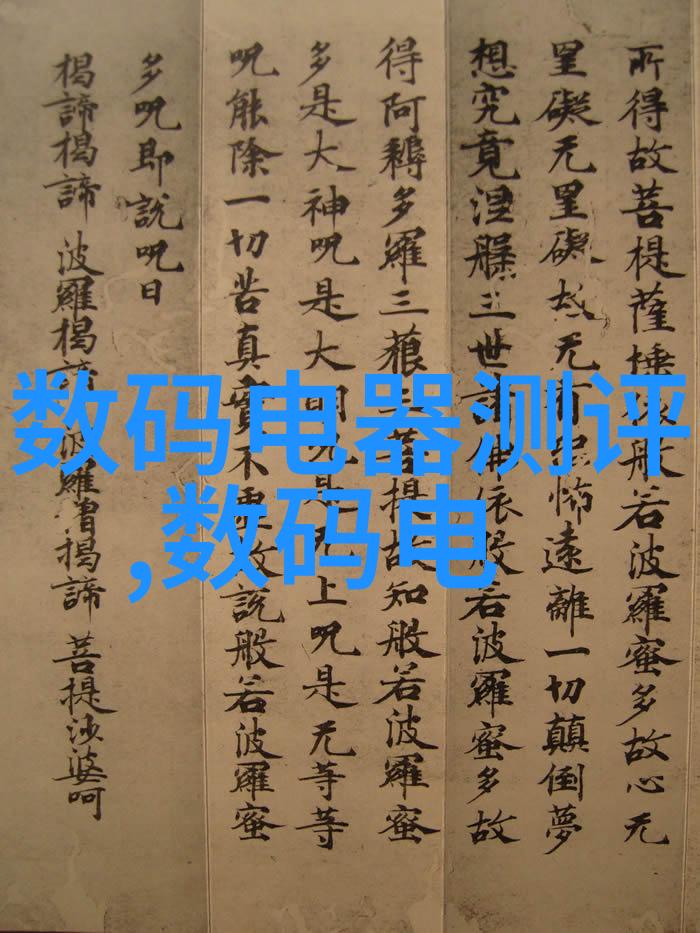 所得故菩提薩埵依般若波羅蜜多故心无
罣礙无罣礙故无有恐怖遠離一切顛倒夢
想究竟涅槃三世諸佛依般若波羅蜜多故
得阿耨多羅三藐三菩提故知般若波羅蜜
多是大神咒是大明咒是无上咒是无等等
咒能除一切苦真實不虛故說般若波羅蜜
多咒即說咒曰
揭諦揭諦 波羅揭諦 波羅僧揭諦 菩提沙婆呵
数码电器测评
,数码电